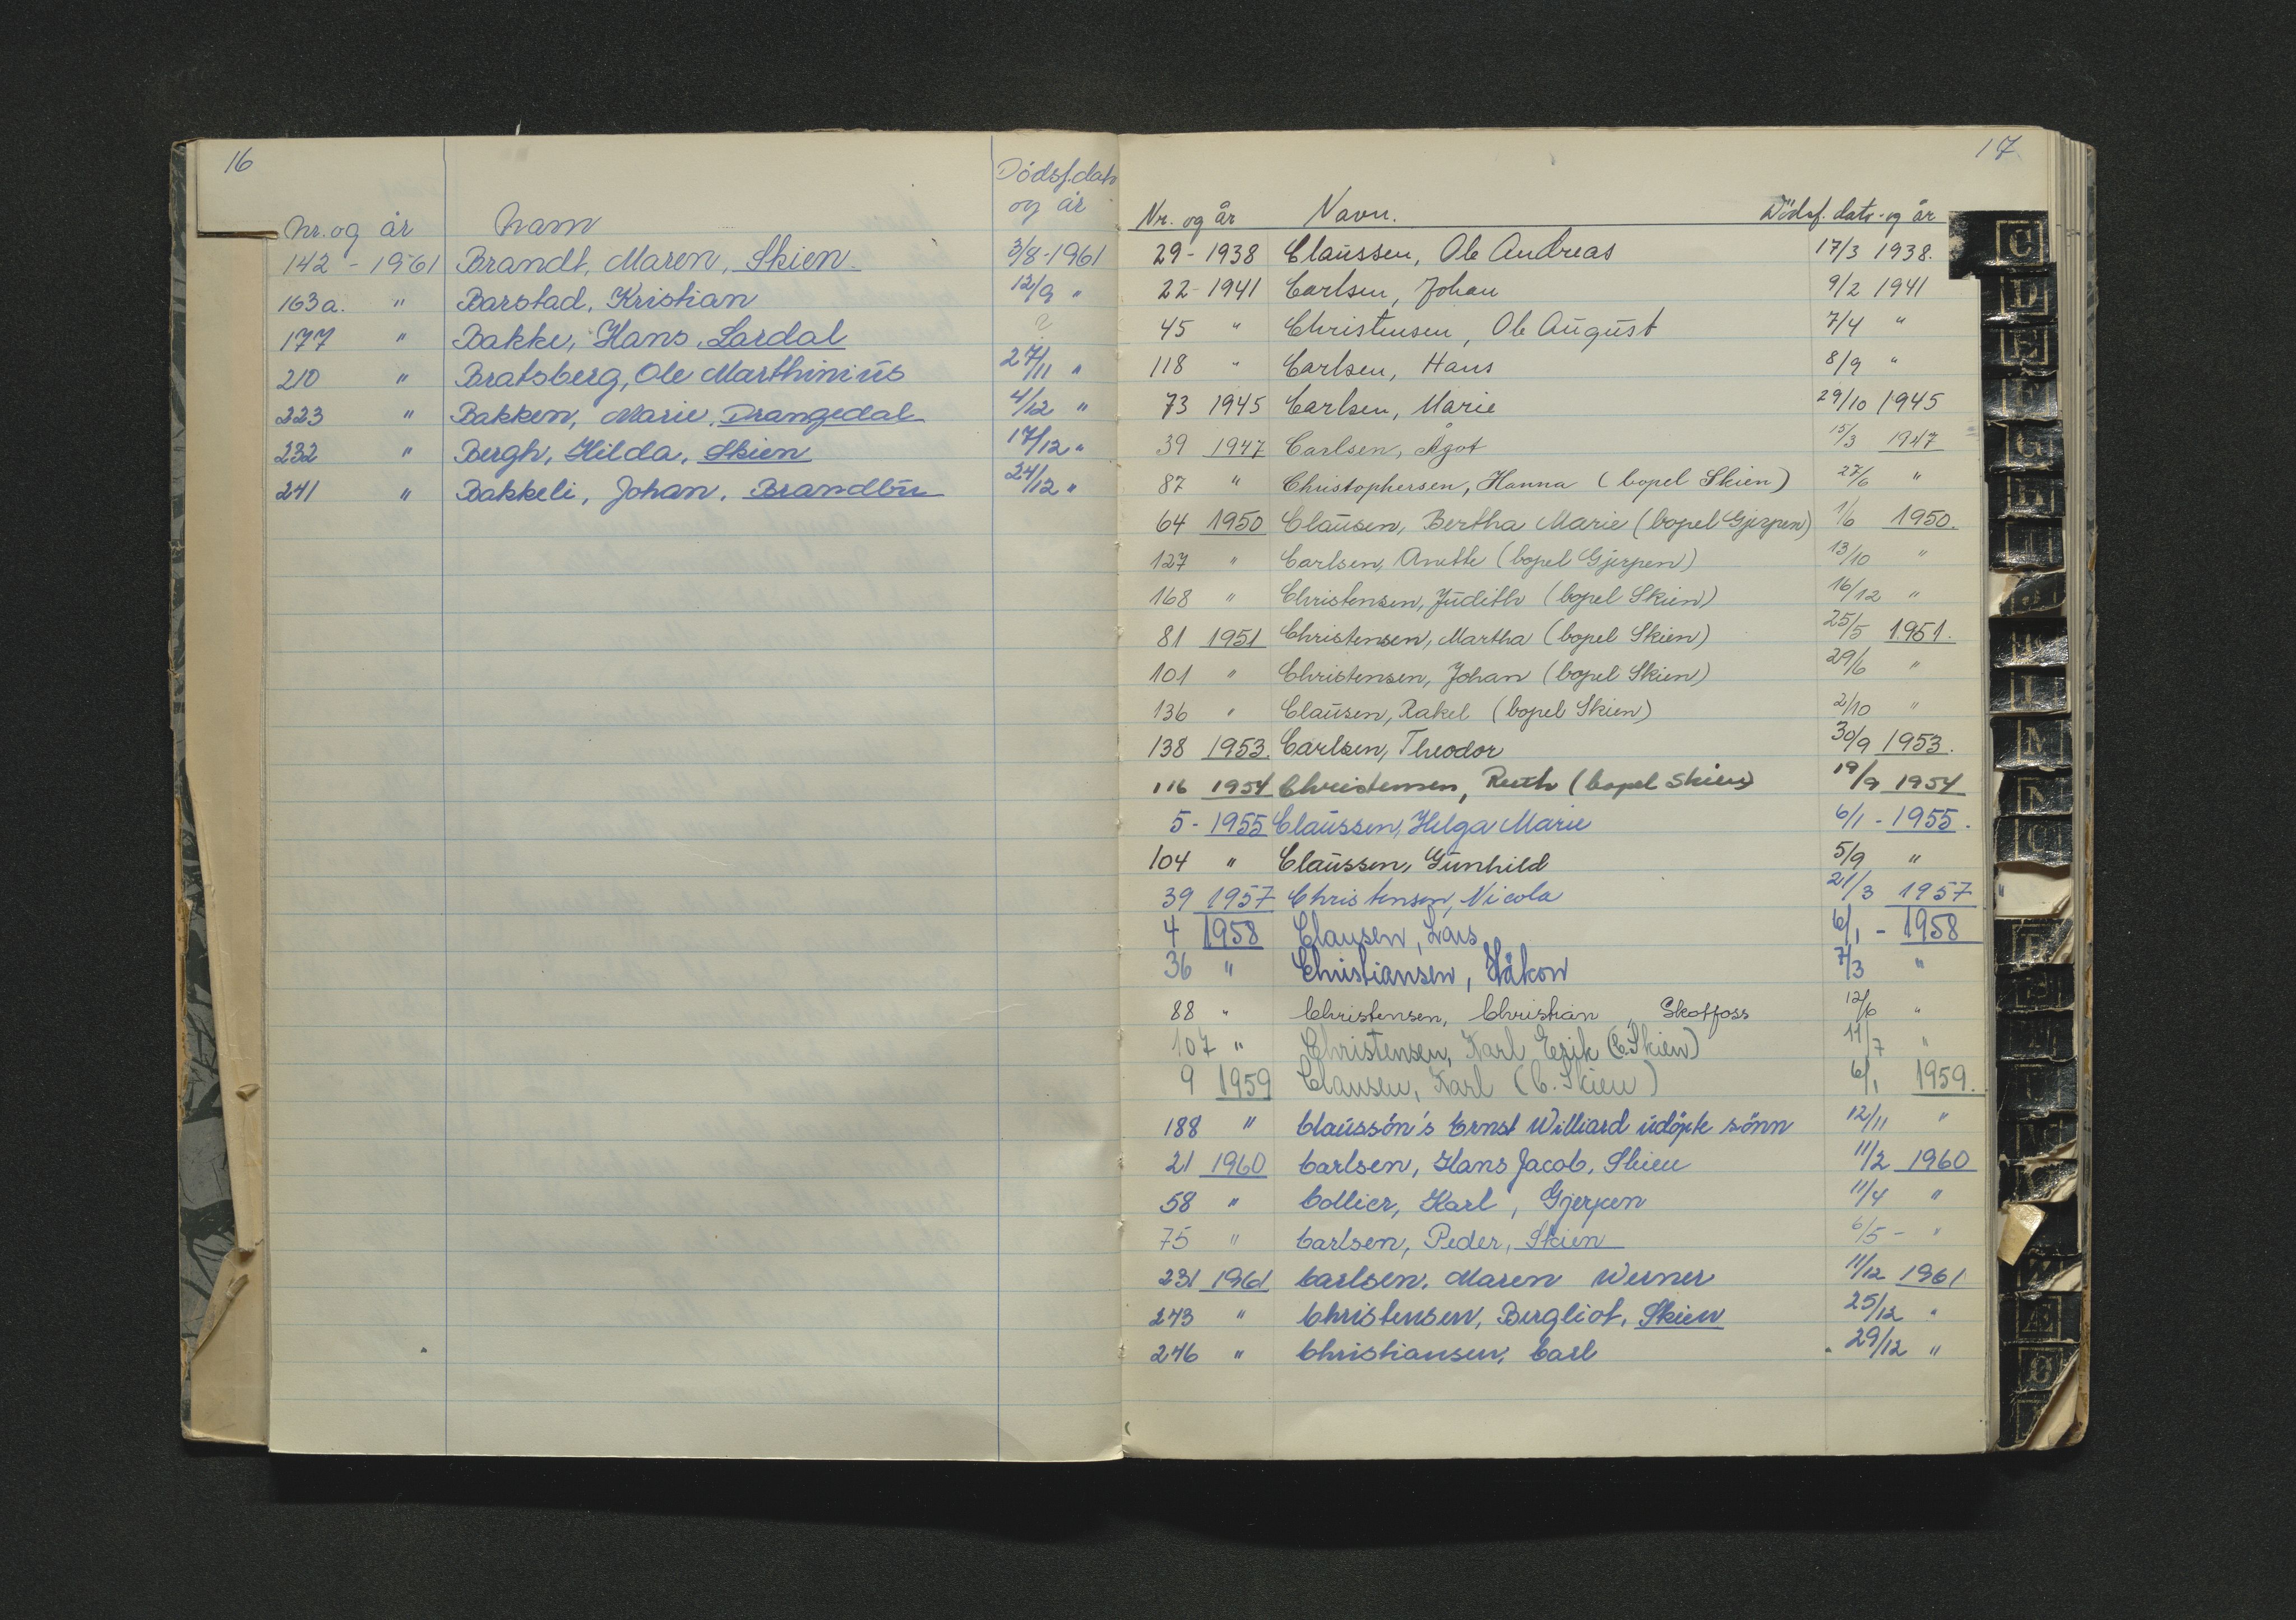 16
Dödsf.dato
og år
Nr. og år Navn
142 - 1961 Brandt, Maren, Skien 3/8-1961
163a. " Barstad, Kristian 12/9 "
177 " Bakke, Hans, Lardal ?
210 " Bratsberg, Ole Marthinius 27/11 "
223 " Bakken, Marie, Drangedal 4/12 "
232 " Bergh, Hilda, Skien 17/12 "
241 " Bakkeli, Johan, Brandbu 24/12 "
17
Nr. og år Navn. Dödsf. dato og år
29 - 1938 Claussen, Ole Andreas 17/3 1938.
22 - 1941 Carlsen, Johan 9/2 1941
45 " Christensen, Ole August 7/4 "
118 " Carlsen, Hans 8/9 "
73 1945 Carlsen, Marie 29/10 1945
39 1947 Carlsen, Ågot 15/3 1947
87 " Christophersen, Hanna (bopel Skien) 27/6 "
64 1950 Clausen, Bertha Marie (bopel Gjerpen) 1/6 1950.
127 " Carlsen, Anette (bopel Gjerpen) 13/10 "
168 " Christensen, Judith (bopel Skien) 16/12 "
81 1951 Christensen, Martha (bopel Skien) 25/5 1951.
101 " Christensen, Johan (bopel Skien) 29/6 "
136 " Clausen, Rakel (bopel Skien) 2/10 "
138 1953. Carlsen, Theodor 30/9 1953.
116 1954 Christensen, Ruth (bopel Skien) 19/9 1954
5 - 1955 Claussen, Helga Marie 6/1 - 1955.
104 " Claussen, Gunhild 5/9 "
39 1957 Christensen, Nicola 21/3 1957
4 1958 Clausen, Lars 6/1 - 1958
36 " Christiansen, Håkon 7/3 "
88 " Christensen, Christian, Skotfoss 12/6 "
107 " Christensen, Karl Erik (b. Skien) 11/7 "
9 1959 Clausen, Karl (b. Skien) 6/1 1959.
188 " Claussön's Ernst Williard udöpte sönn 12/11 "
21 1960 Carlsen, Hans Jacob, Skien 11/2 1960
58 " Collier, Karl, Gjerpen 11/4 "
75 " Carlsen, Peder, Skien 6/5 - "
231 1961 Carlsen, Maren Werner 11/12 1961
243 " Christensen, Bergliot, Skien 25/12 "
246 " Christiansen, Carl 29/12 "
C
D
E
F
G
H
M
N
Æ
Ø